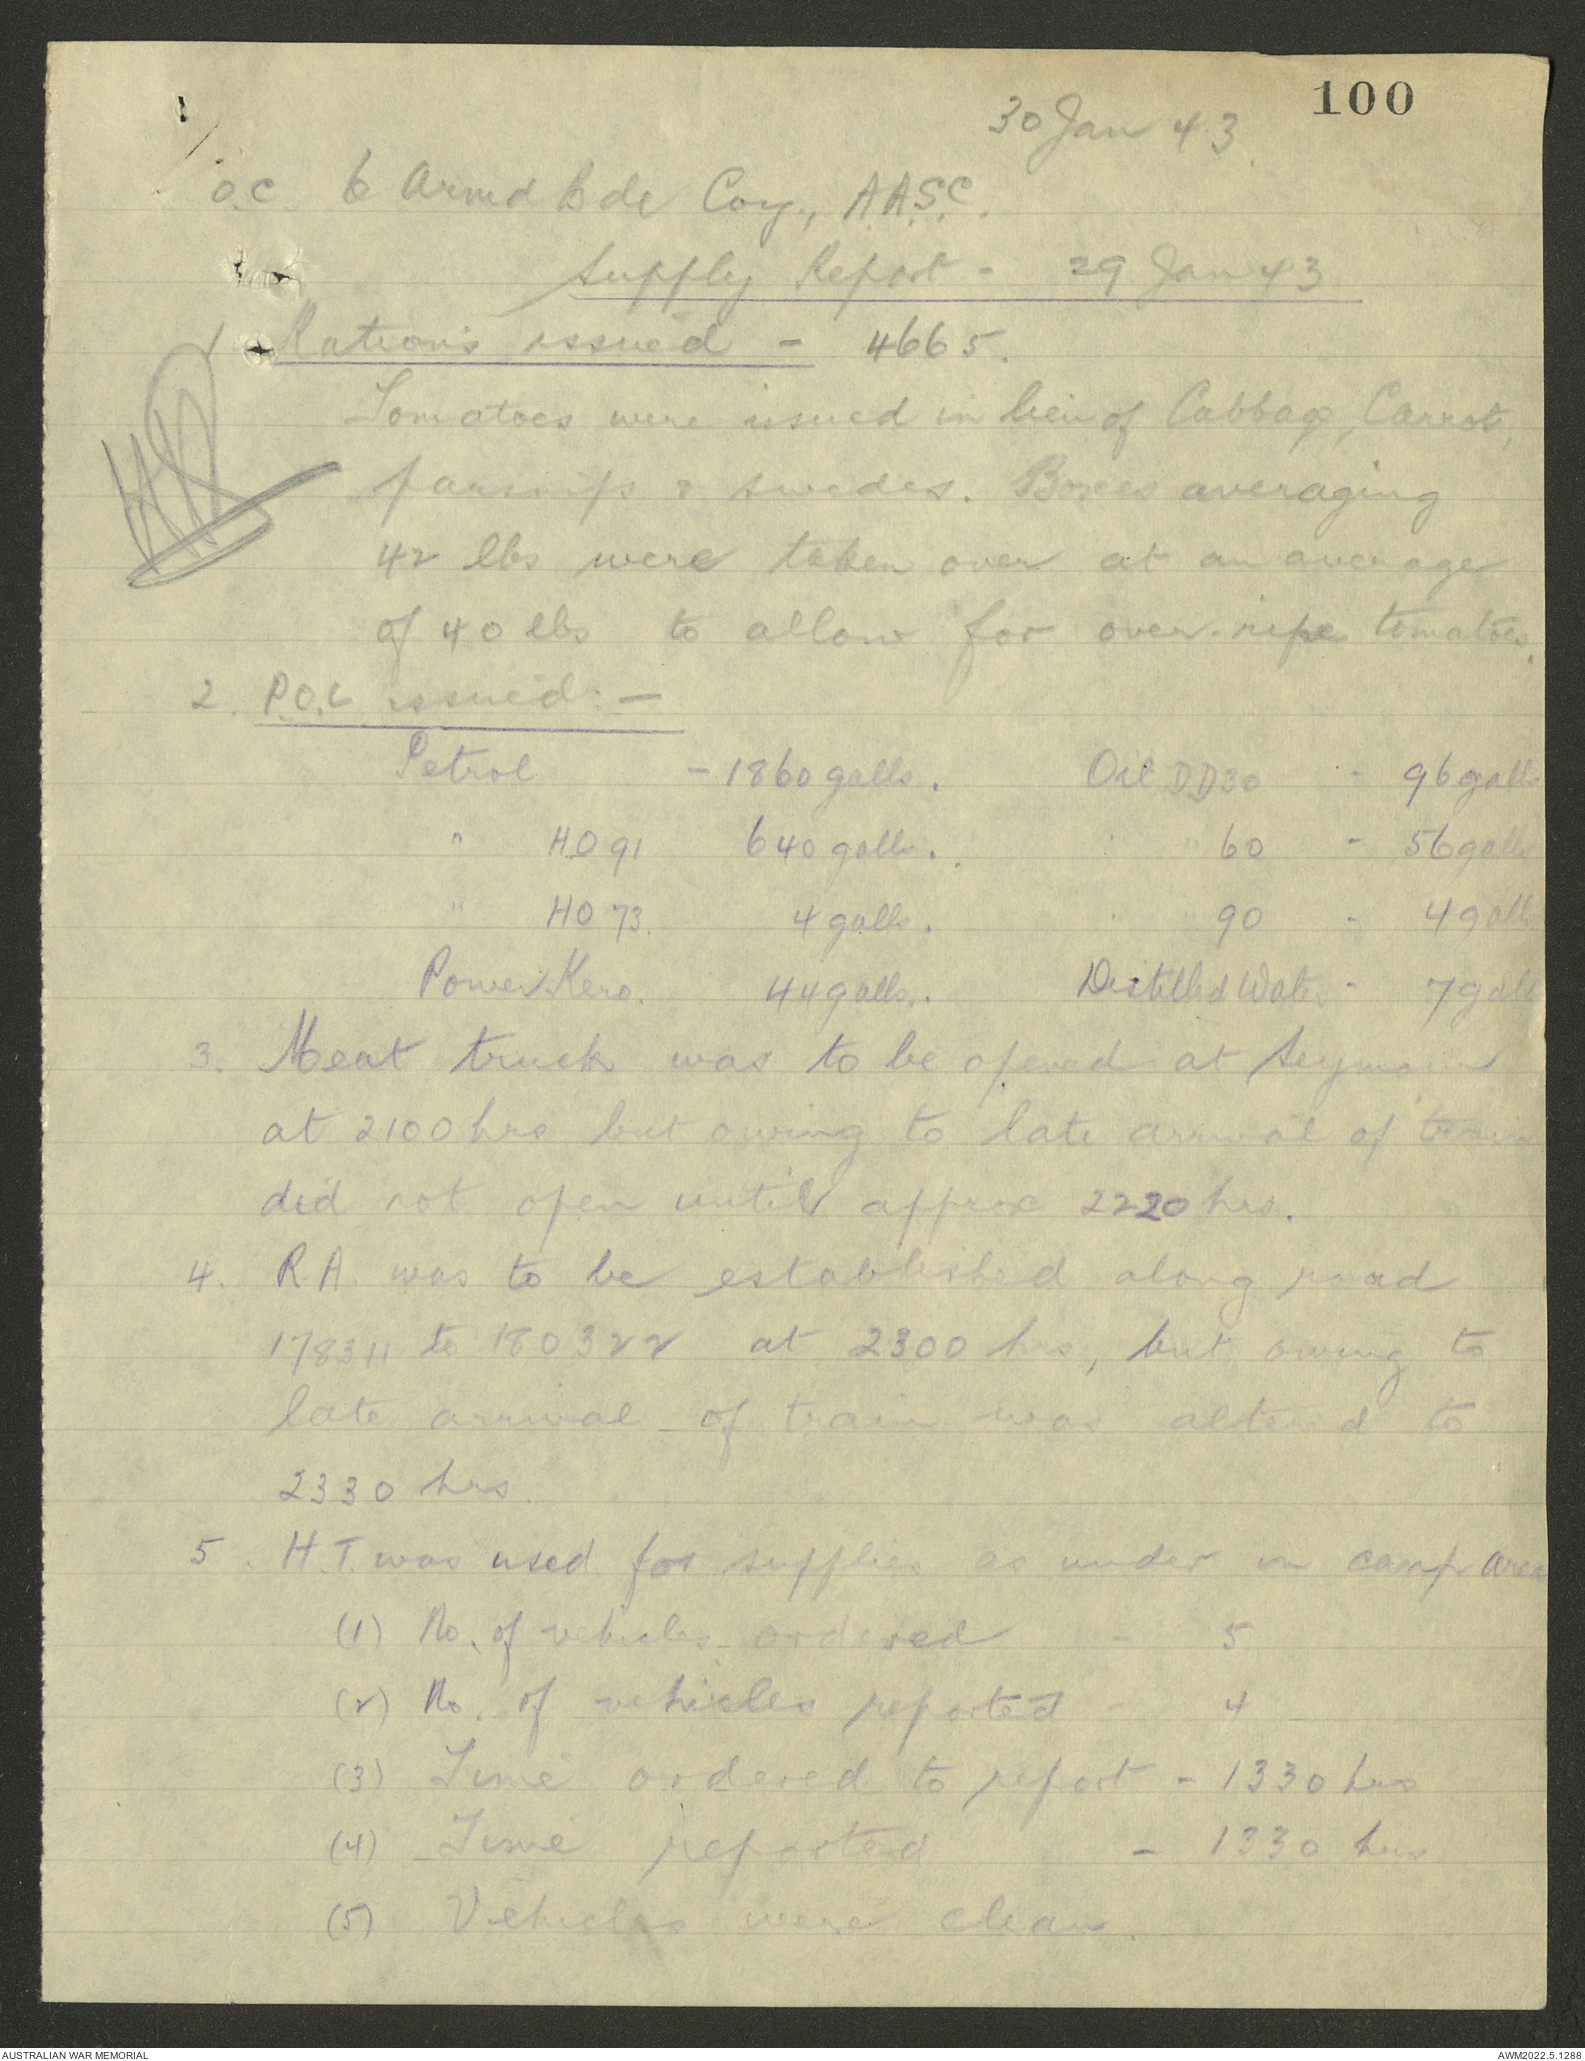 100
30 Jan 43.
O.C. 6 Armd Bde Coy., A.A.S.C.
Supply Report - 29 Jan 43
1 Rations issued - 4665.
Tomatoes were issued in lieu of Cabbage, Carrot,
parsnips & swedes. Boxes averaging
42 lbs were taken over at an average
of 40 lbs to allow for over-ripe tomatoes.
2. P.O.L issued:-
Petrol - 1860 galls. Oil DD30 - 96 galls
" HO 91 640 galls. " " 60 - 56 galls
" HO 73. 4 galls. " " 90 - 4 galls
Power Kero. 44 galls. Distilled Water - 7 galls
3. Meat truck was to be opened at Seymour
at 2100 hrs but owing to late arrival of train
did not open until approx 2220 hrs.
4. R.A. was to be established along road
178311 to 180322 at 2300 hrs, but owing to
late arrival of train was altered to
2330 hrs.
5. H.T. was used for supplies as under in camp area
(1) No. of vehicles ordered - 5
(2) No. of vehicles reported - 4
(3) Time ordered to report - 1330 hrs
(4) Time reported - 1330 hrs
(5) Vehicles were clean.
AUSTRALIAN WAR MEMORIAL AWM2022.5.1288